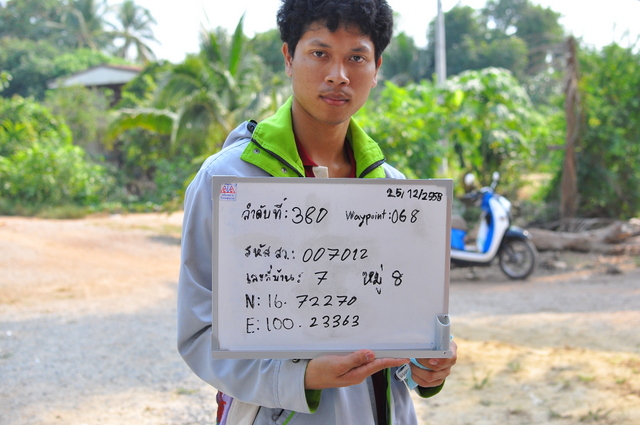 25/12/2558
ลำดับที่: 380 Waypoint: 068
รหัส สว.: 007012
เลขที่บ้าน: 7 หมู่ 8
N: 16. 72270
E: 100. 23363